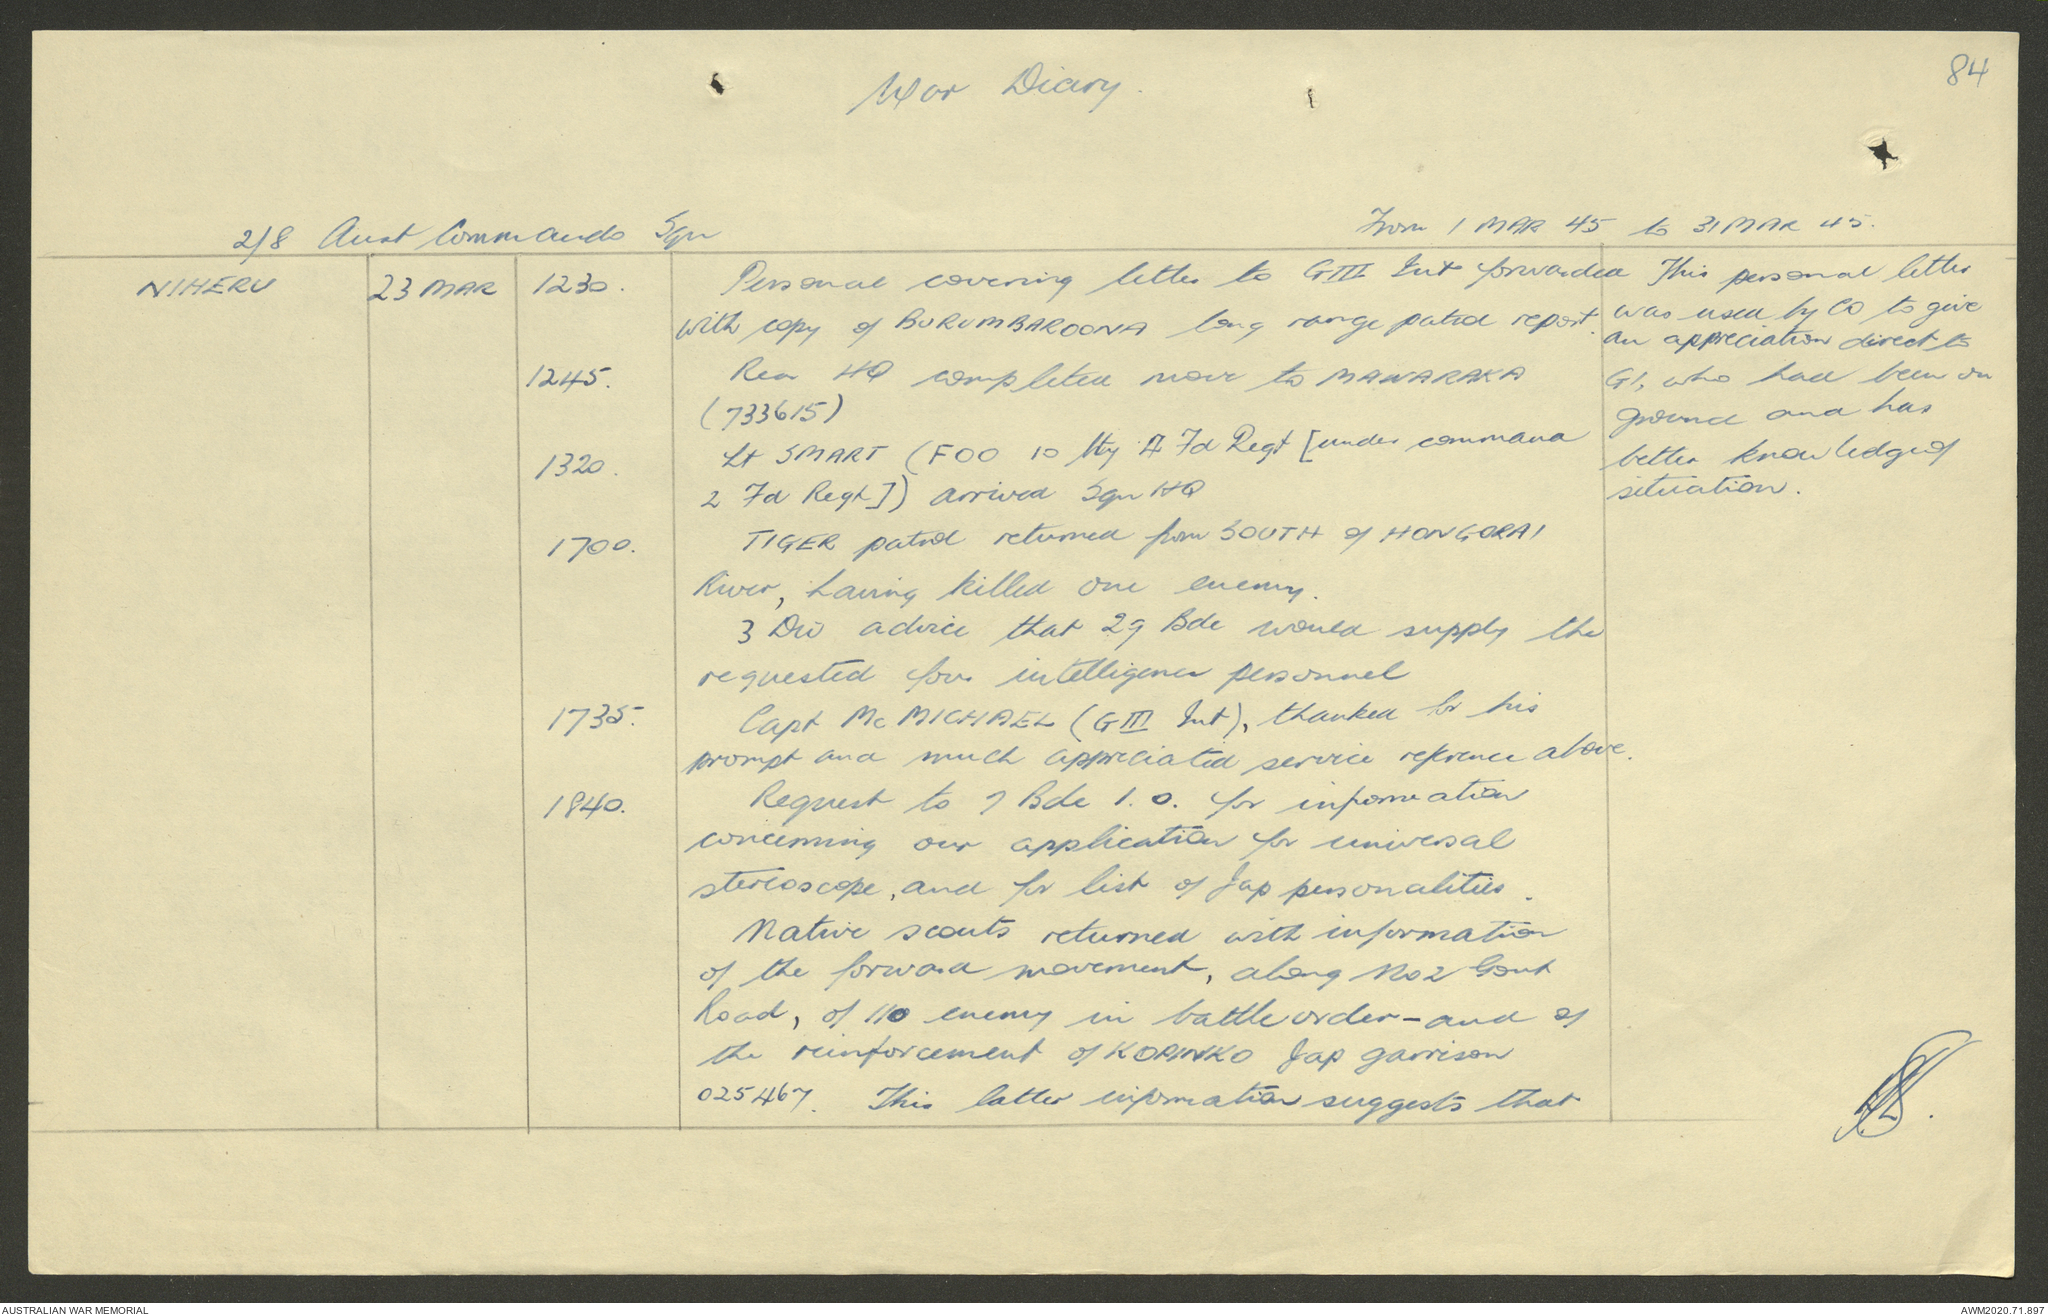 84
War Diary.
2/8 Aust Commando Sqn
From 1 MAR 45 to 31 MAR 45.
NIHERU 23 MAR 1230. Personal covering letter to GIII Int forwarded
with copy of BURUMBAROONA long range patrol report.
1245. Rear HQ completed move to MAWARAKA
(733615)
1320. Lt SMART (FOO 10 Bty 4 Fd Regt [under command
2 Fd Regt]) arrived Sqn HQ
1700. TIGER patrol returned from SOUTH of HONGORAI
River, having killed one enemy.
3 Div advice that 29 Bde would supply the
requested for intelligence personnel
1735. Capt McMICHAEL (GIII Int), thanked for his
prompt and much appreciated service reference above.
1840. Request to 7 Bde I.O. for information
concerning our application for universal
stereoscope, and for list of Jap personalities.
Native scouts returned with information
of the forward movement, along No 2 Govt
Road, of 110 enemy in battle order – and of
the reinforcement of KOPINKO Jap garrison
025467. This latter information suggests that
This personal letter
was used by CO to give
an appreciation direct to
G1, who had been on
ground and has
better knowledge of
situation.
AUSTRALIAN WAR MEMORIAL
AWM2020.71.897